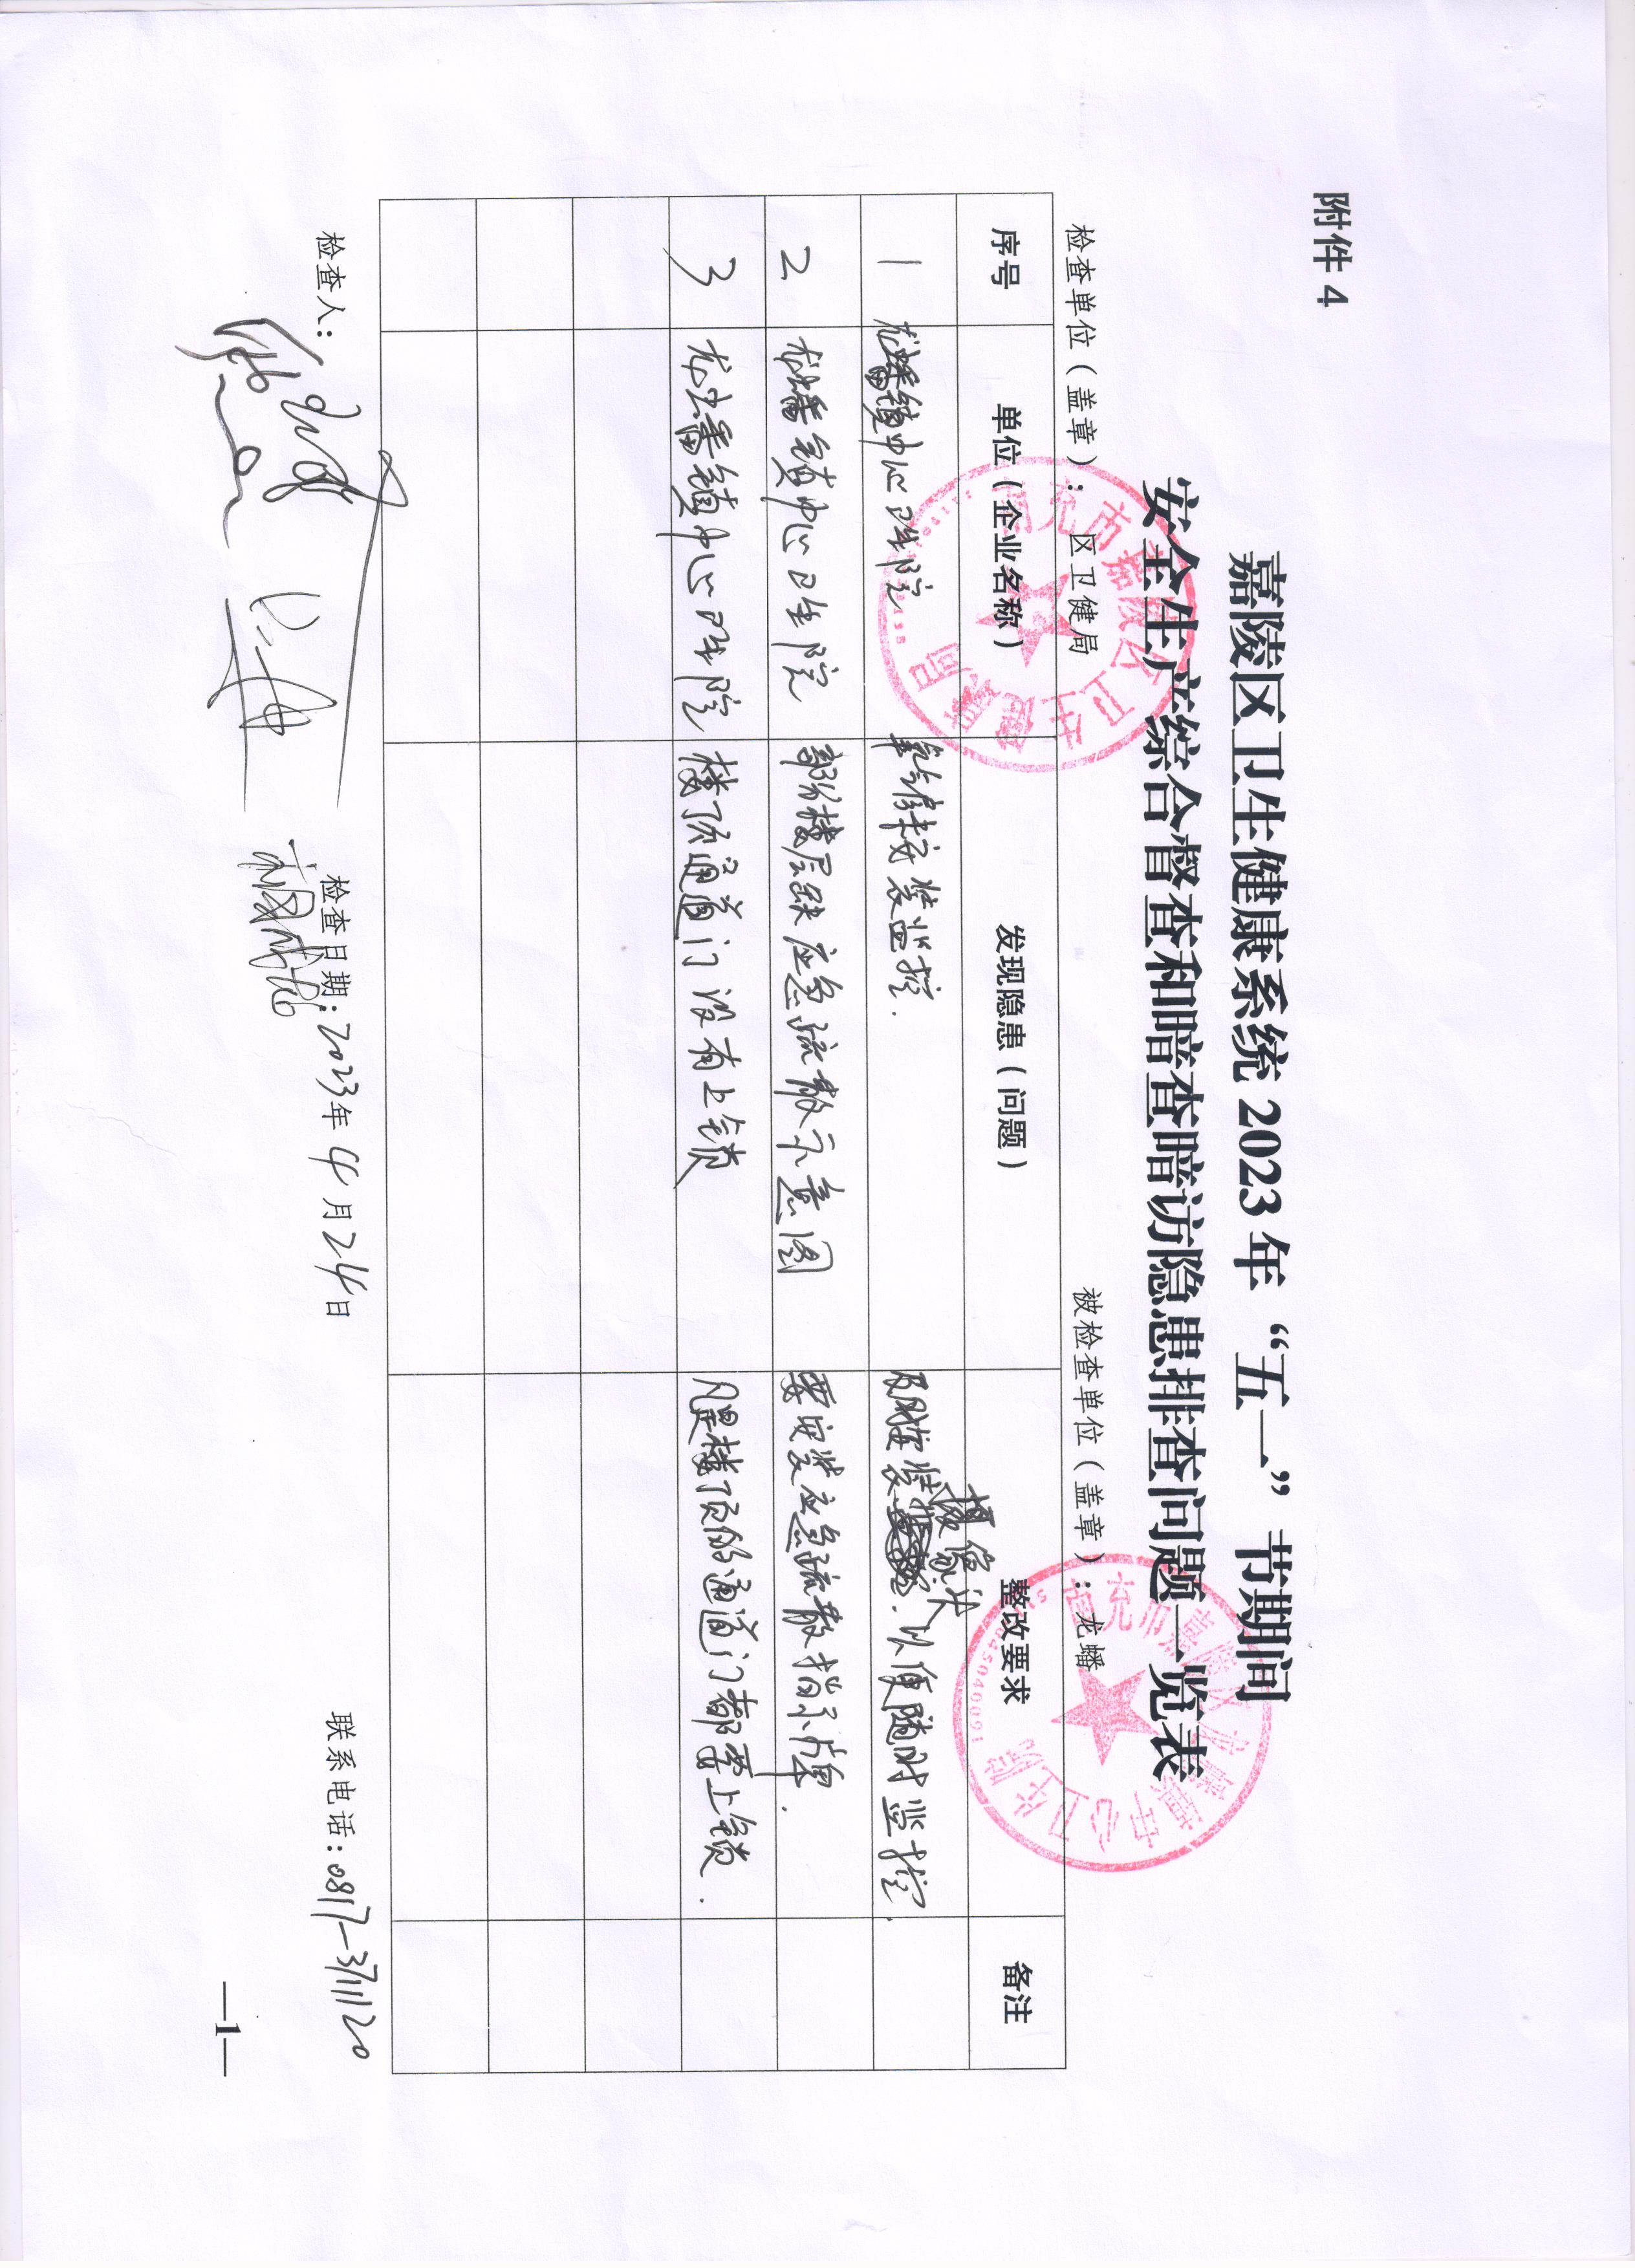 附件 4
嘉陵区卫生健康系统 2023 年“五一”节期间
安全生产综合督查和暗查暗访隐患排查问题一览表
检查单位（盖章）：区卫健局 被检查单位（盖章）：龙蟠
南充市嘉陵区卫生健康局
南充市嘉陵区龙蟠镇中心卫生院
序号 单位（企业名称） 发现隐患（问题） 整改要求 备注
1 龙蟠镇中心卫生院 未安装监控. 及时安装摄像头.以便随时监控.
2 龙蟠镇中心卫生院 部分楼层缺应急疏散示意图 要安装应急疏散指示牌.
3 龙蟠镇中心卫生院 楼顶通道门没有上锁 凡是楼顶的通道门都要上锁.
检查人： 检查日期：2023年4月24日 联系电话：0817-3711120
—1—